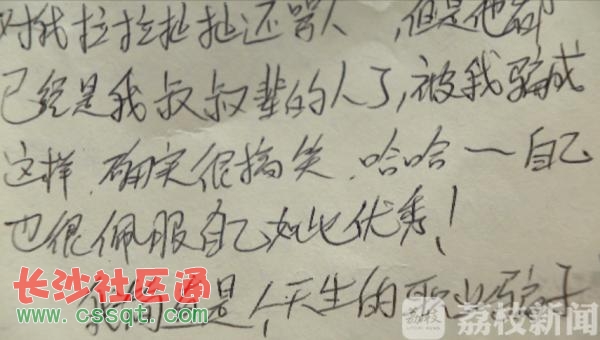 对我拉拉扯扯还骂人，但是他都
已经是我叔叔辈的人了，被我骗成
这样，确实很搞笑，哈哈一自己
也很佩服自己如此优秀！
我简直是个天生的职业骗子
长沙社区通
www.cssqt.com
荔枝
荔枝新闻